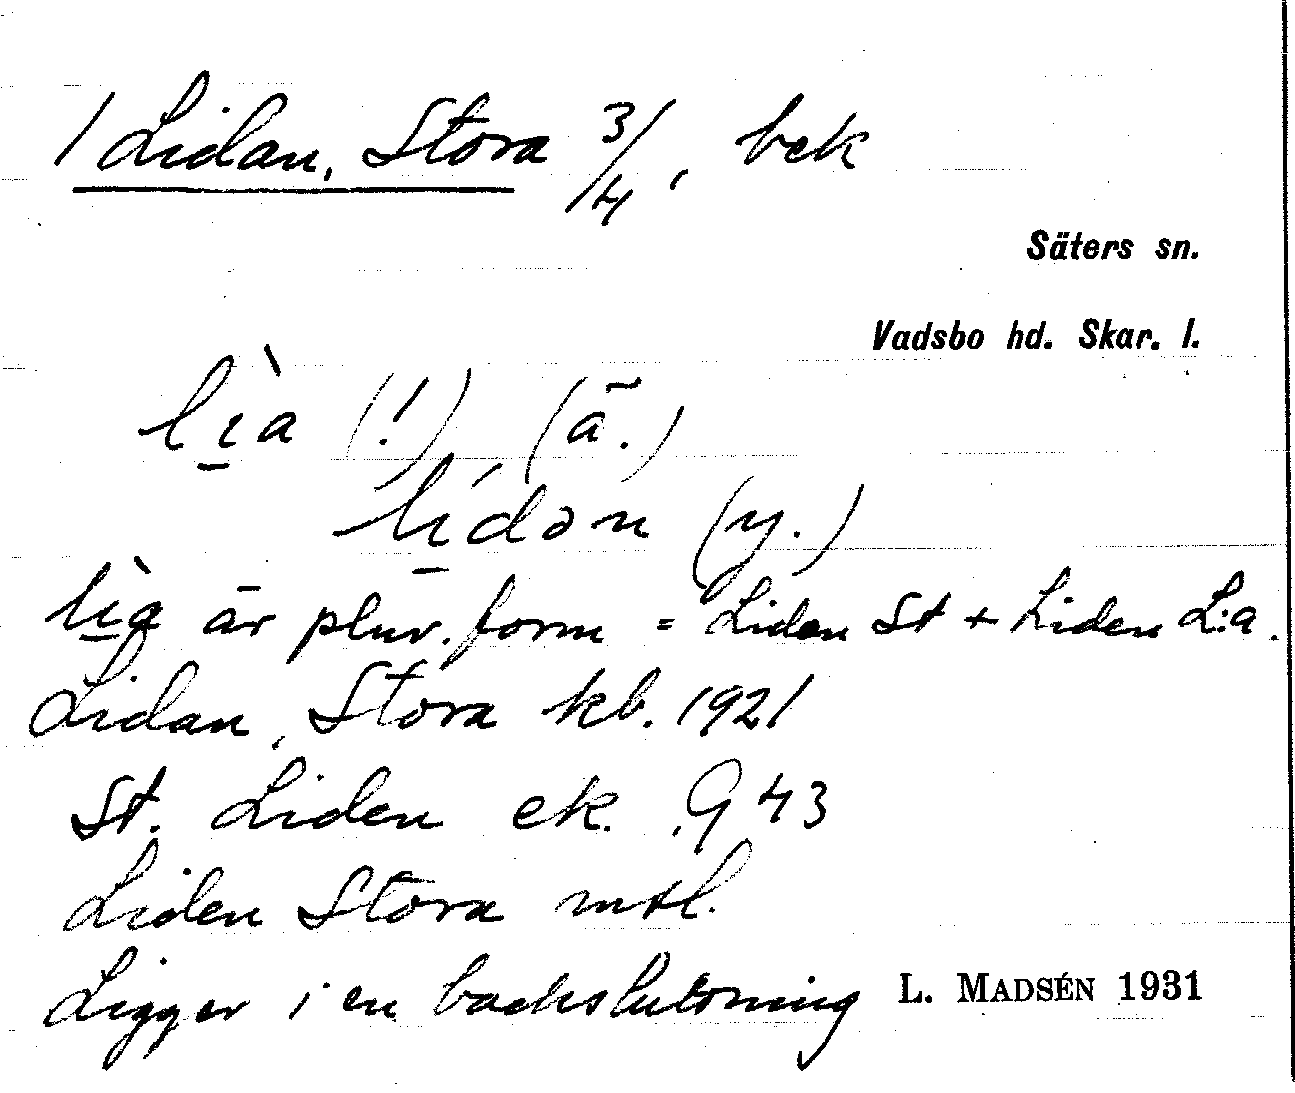 1 Lidan, Stora 3/4, bek
Säters sn.
Vadsbo hd. Skar. l.
lìa (!) (ä.)
lídən (y.)
lìa är plur. form = Liden St + Liden L:a.
Lidan, Stora kb. 1921
St. Liden ek. G 43
Liden Stora mtl.
Ligger i en backsluttning
L. MADSÉN 1931